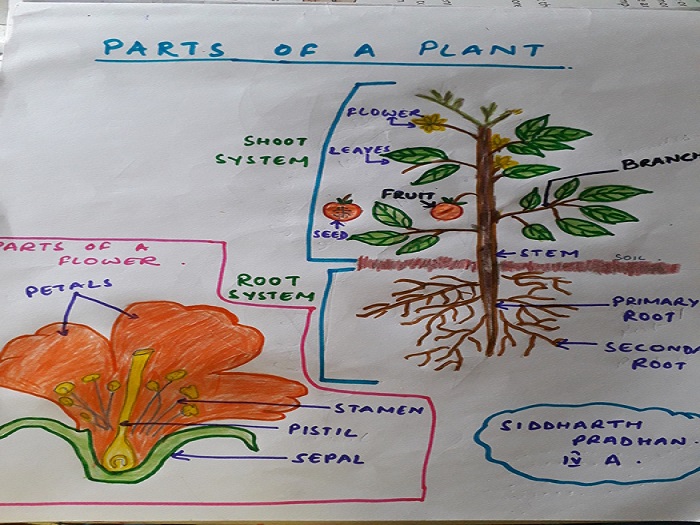 PARTS OF A PLANT
FLOWER
SHOOT
SYSTEM
LEAVES
BRANCH
FRUIT
SEED
STEM
SOIL
PARTS OF A
FLOWER.
ROOT
SYSTEM
PETALS
PRIMARY
ROOT
SECONDA
ROOT
STAMEN
PISTIL
SEPAL
SIDDHARTH
PRADHAN.
IV A.